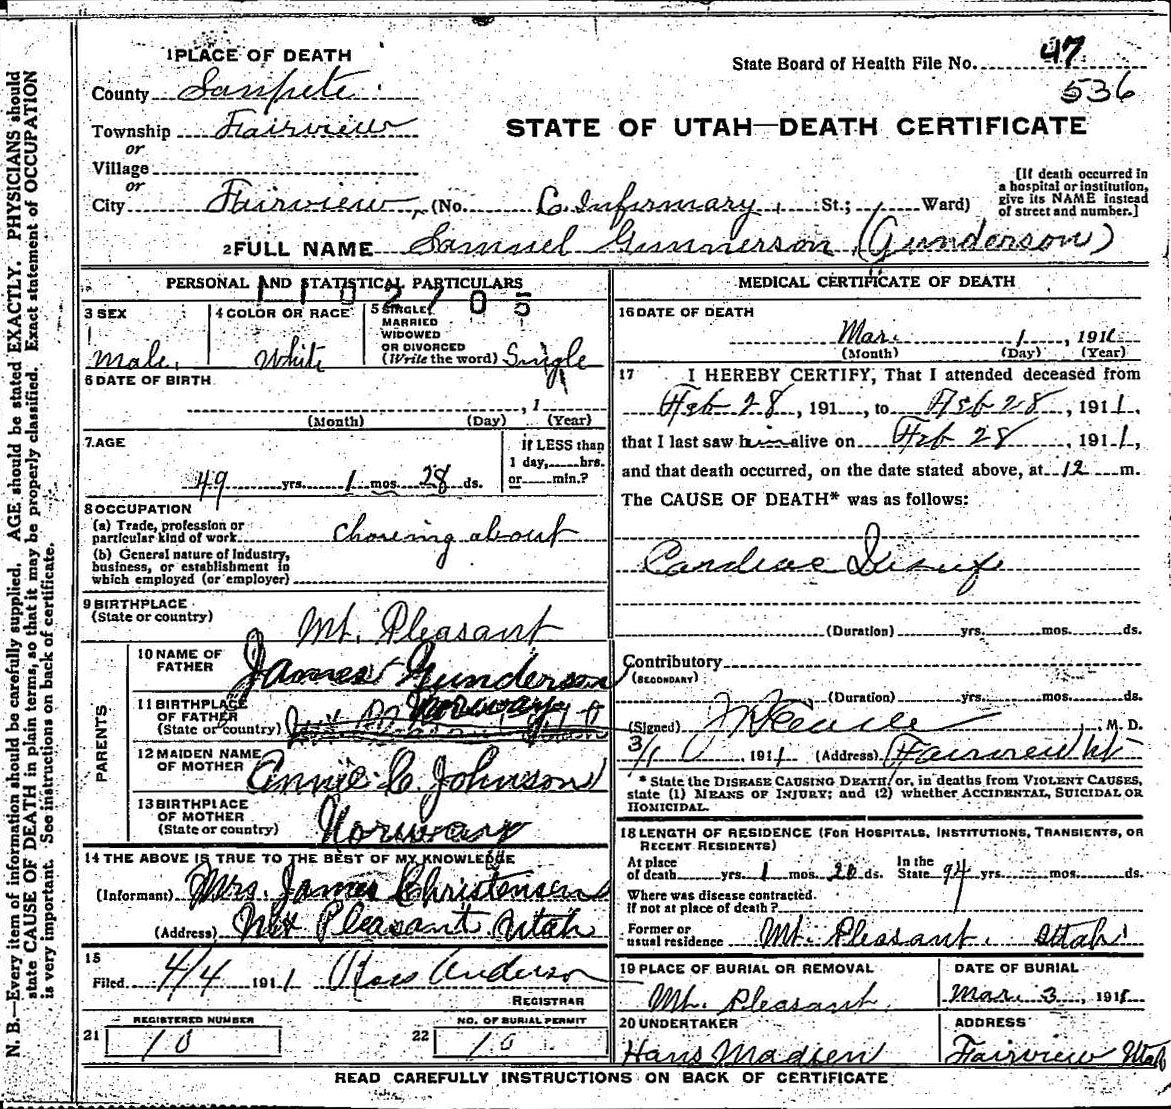 1 PLACE OF DEATH
State Board of Health File No. 47
536
County Sanpete
Township Fairview
or
Village
or
City Fairview, (No. C. Infirmary, St.; Ward)
[If death occurred in a hospital or institution, give its NAME instead of street and number.]
STATE OF UTAH—DEATH CERTIFICATE
2 FULL NAME Samuel Gunnerson (Gunderson)
PERSONAL AND STATISTICAL PARTICULARS
1102705
3 SEX
Male
4 COLOR OR RACE
White
5 SINGLE, MARRIED WIDOWED OR DIVORCED (Write the word) Single
6 DATE OF BIRTH
, 1
(Month) (Day) (Year)
7. AGE
49 yrs. 1 mos. 28 ds.
If LESS than 1 day, hrs. or min.?
8 OCCUPATION
(a) Trade, profession or particular kind of work choring about
(b) General nature of industry, business, or establishment in which employed (or employer)
9 BIRTHPLACE (State or country)
Mt. Pleasant
PARENTS
10 NAME OF FATHER James Gunderson
11 BIRTHPLACE OF FATHER (State or country) Norway
12 MAIDEN NAME OF MOTHER Annie C. Johnson
13 BIRTHPLACE OF MOTHER (State or country) Norway
14 THE ABOVE IS TRUE TO THE BEST OF MY KNOWLEDGE
(Informant) Mrs. James Christensen
(Address) Mt Pleasant Utah
15
Filed 4/4 1911 Anderson
REGISTRAR
21 REGISTERED NUMBER
10
22 NO. OF BURIAL PERMIT
10
MEDICAL CERTIFICATE OF DEATH
16 DATE OF DEATH
Mar. 1, 1911
(Month) (Day) (Year)
17 I HEREBY CERTIFY, That I attended deceased from
Feb 28, 191 , to Feb 28, 1911,
that I last saw him alive on Feb 28, 1911,
and that death occurred, on the date stated above, at 12 m.
The CAUSE OF DEATH* was as follows:
Cardiac
(Duration) yrs. mos. ds.
Contributory
(SECONDARY)
(Duration) yrs. mos. ds.
(Signed) M. D.
3/1, 1911 (Address) Fairview Ut
* State the DISEASE CAUSING DEATH, or, in deaths from VIOLENT CAUSES, state (1) MEANS OF INJURY; and (2) whether ACCIDENTAL, SUICIDAL OR HOMICIDAL.
18 LENGTH OF RESIDENCE (FOR HOSPITALS, INSTITUTIONS, TRANSIENTS, OR RECENT RESIDENTS)
At place of death yrs. 1 mos. 20 ds. In the State yrs. mos. ds.
Where was disease contracted. if not at place of death?
Former or usual residence Mt. Pleasant. Utah
19 PLACE OF BURIAL OR REMOVAL
Mt. Pleasant.
DATE OF BURIAL
Mar. 3, 1911
20 UNDERTAKER
Hans Madsen
ADDRESS
Fairview Utah
READ CAREFULLY INSTRUCTIONS ON BACK OF CERTIFICATE
N. B.—Every item of information should be carefully supplied. AGE should be stated EXACTLY. PHYSICIANS should
state CAUSE OF DEATH in plain terms, so that it may be properly classified. Exact statement of OCCUPATION
is very important. See instructions on back of certificate.